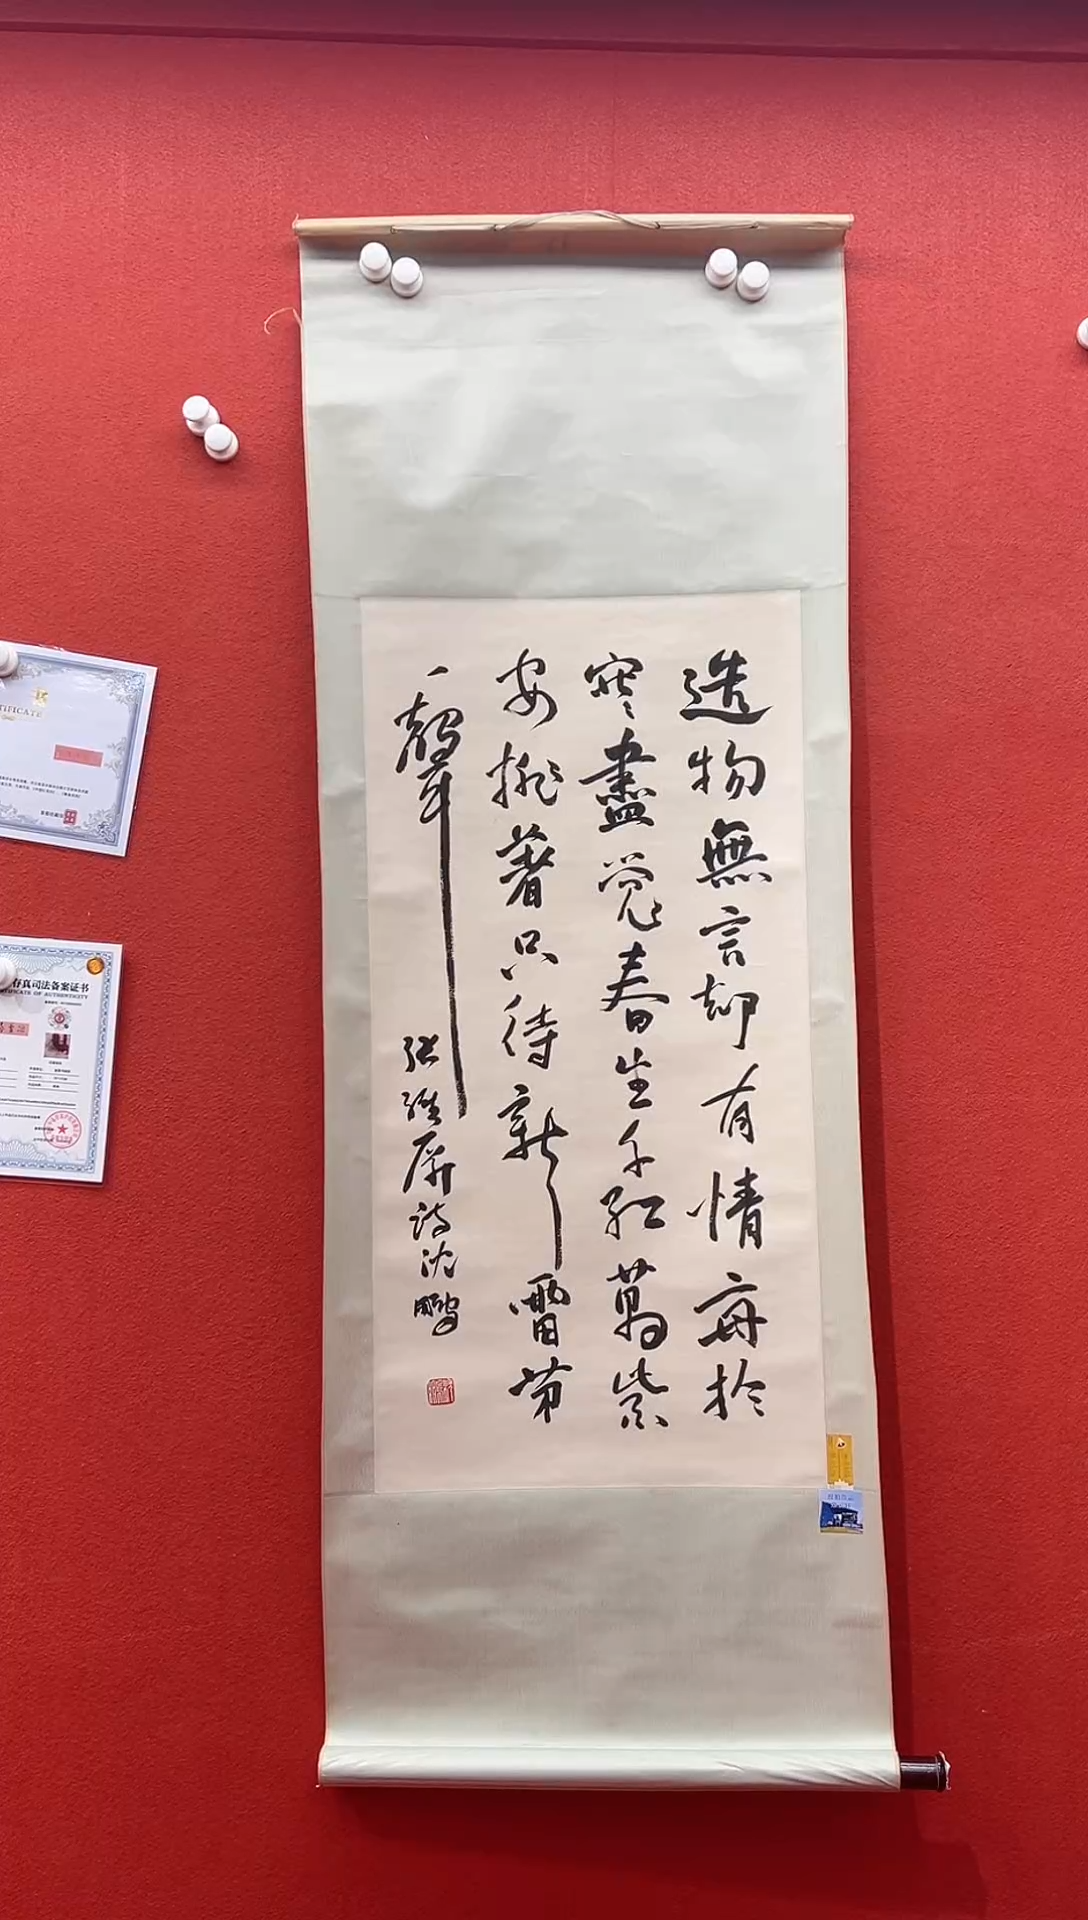 造物無言却有情每於
寒盡覺春生千紅萬紫
安排著只待新雷第
一聲
張維屏詩沈鵬
TIFICATE
存真司法备案证书
TIFICATE OF AUTHENTICITY